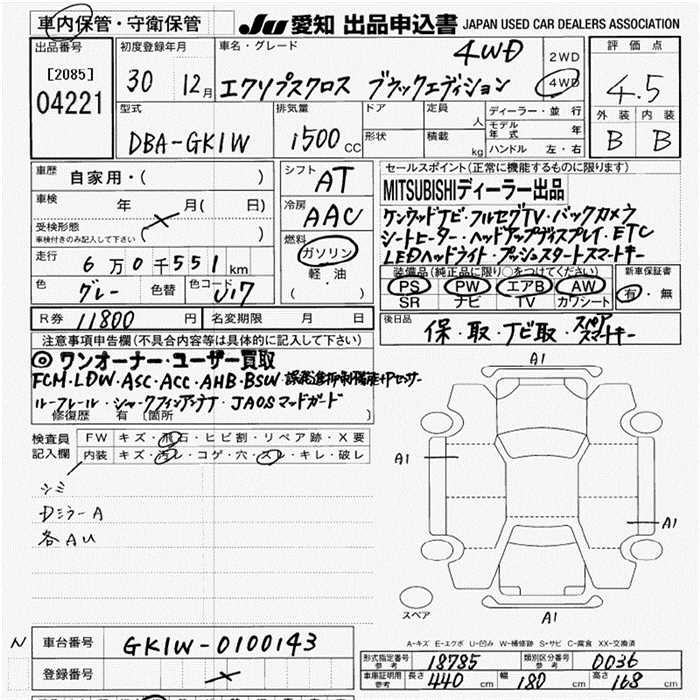 車内保管・守衛保管 JU 愛知 出品申込書 JAPAN USED CAR DEALERS ASSOCIATION
出品番号 初度登録年月 車名・グレード 4WD 2WD 評価点
[2085] 30 12月 エクリプスクロス ブラックエディション 4WD 4.5
04221
型式 排気量 ドア 定員 人 ディーラー・並行 外装 内装
DBA-GK1W 1500CC 形状 積載 kg モデル年式 年 B B
ハンドル 左・右
車歴 自家用・( ) シフト AT セールスポイント(正常に機能するものに限ります)
車検 年 月( 日) 冷房 AAC MITSUBISHIディーラー出品
受検形態 ( ) ケンウッドナビ・フルセグTV・バックカメラ
車検付きのみ記入して下さい シートヒーター・ヘッドアップディスプレイ・ETC
走行 6万0千551km 燃料 ガソリン LEDヘッドライト・プッシュスタートスマートキー
軽・油 ( ) 装備品(純正品に限り○をつけてください) 新車保証書
色 グレー 色替 色コード U17 PS PW エアB AW 有・無
SR ナビ TV カワシート
R券 11800円 名変期限 月 日 後日品 保・取・ナビ取・スペアスマートキー
注意事項申告欄(不具合内容等は具体的に記入して下さい)
◎ワンオーナー・ユーザー買取
FCM・LDW・ASC・ACC・AHB・BSW・誤発進抑制機能+Pセンサー
ルーフレール・シャークフィンアンテナ・JAOSマッドガード
修復歴 有 [箇所 ]
検査員記入欄 FW キズ・飛石・ヒビ割・リペア跡・X要
内装 キズ・汚レ・コゲ・穴・スレ・キレ・破レ
シミ
DミラーA
各AU
A1
A1
A1
A1
スペア
A-キズ E-エクボ U-凹み W-補修跡 S-サビ C-腐食 XX-交換済
N 車台番号 GK1W-0100143
登録番号
形式指定番号 参考 18785 類別区分番号 参考 0036
車庫証明用 参考 長さ 440cm 幅 180cm 高さ 168cm